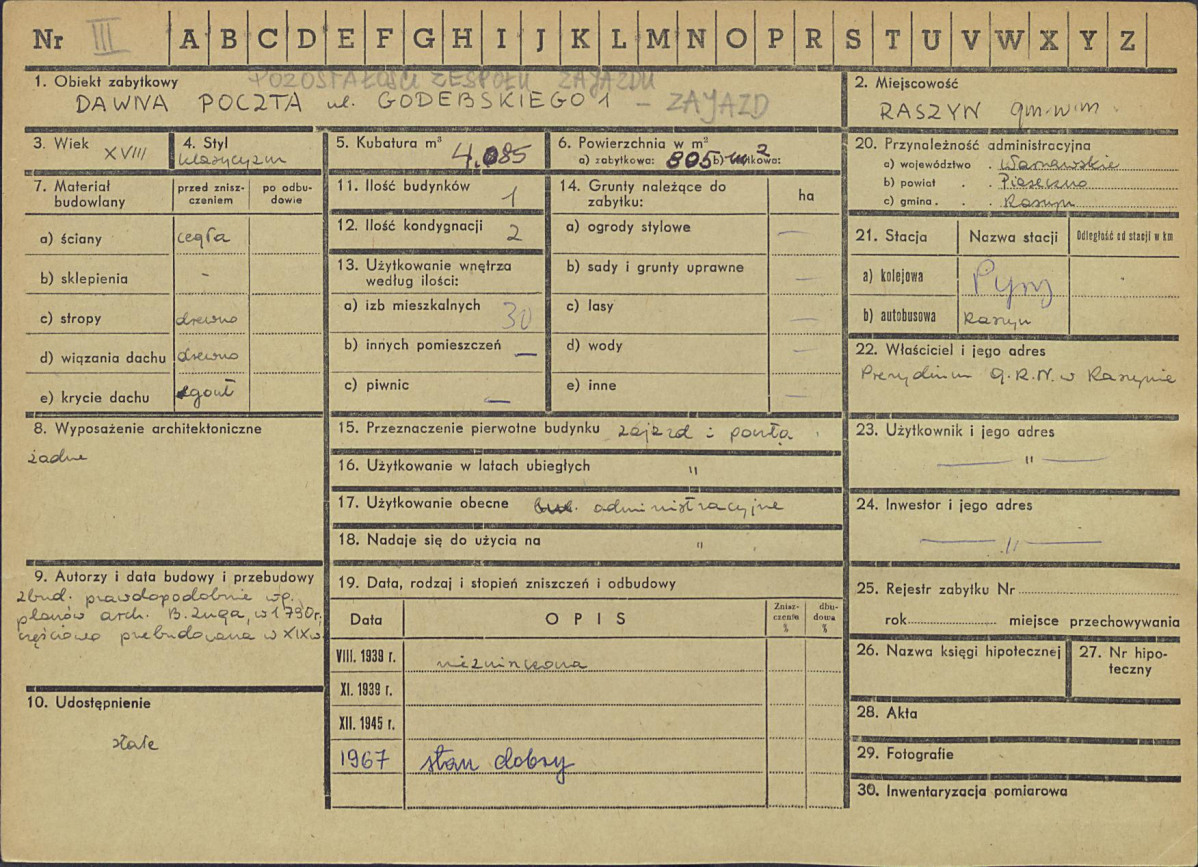 Nr III A B C D E F G H I J K L M N O P R S T U V W X Y Z
1. Obiekt zabytkowy
POZOSTAŁOŚCI ZESPOŁU ZAJAZDU
DAWNA POCZTA ul. GODEBSKIEGO 1 – ZAJAZD
2. Miejscowość
RASZYN gm.
3. Wiek XVIII
4. Styl
klasycyzm
5. Kubatura m³ 4.085
6. Powierzchnia w m²
a) zabytkowa: 805 b)
7. Materiał budowlany
przed zniszczeniem
po odbudowie
a) ściany cegła
b) sklepienia -
c) stropy drewno
d) wiązania dachu drewno
e) krycie dachu gont
8. Wyposażenie architektoniczne
żadne
9. Autorzy i data budowy i przebudowy
zbud. prawdopodobnie wg.
planów arch. B. Zuga, w 1790 r,
częściowo przebudowana w XIX w
10. Udostępnienie
stałe
11. Ilość budynków 1
12. Ilość kondygnacji 2
13. Użytkowanie wnętrza
według ilości:
a) izb mieszkalnych 30
b) innych pomieszczeń —
c) piwnic —
14. Grunty należące do
zabytku:
ha
a) ogrody stylowe —
b) sady i grunty uprawne —
c) lasy —
d) wody —
e) inne —
15. Przeznaczenie pierwotne budynku zajazd i poczta
16. Użytkowanie w latach ubiegłych "
17. Użytkowanie obecne administracyjne
18. Nadaje się do użycia na "
19. Data, rodzaj i stopień zniszczeń i odbudowy
Data
OPIS
Zniszczenia %
dbudowa %
VIII. 1939 r. niezniszczona
XI. 1939 r.
XII. 1945 r.
1967 stan dobry
20. Przynależność administracyjna
a) województwo . Warszawskie
b) powiat . . Piaseczno
c) gmina . . Raszyn
21. Stacja
Nazwa stacji
Odległość od stacji w km
a) kolejowa Pyry
b) autobusowa Raszyn
22. Właściciel i jego adres
Prezydium G.R.N. w Raszynie
23. Użytkownik i jego adres
— " —
24. Inwestor i jego adres
— " —
25. Rejestr zabytku Nr
rok miejsce przechowywania
26. Nazwa księgi hipotecznej
27. Nr hipoteczny
28. Akta
29. Fotografie
30. Inwentaryzacja pomiarowa